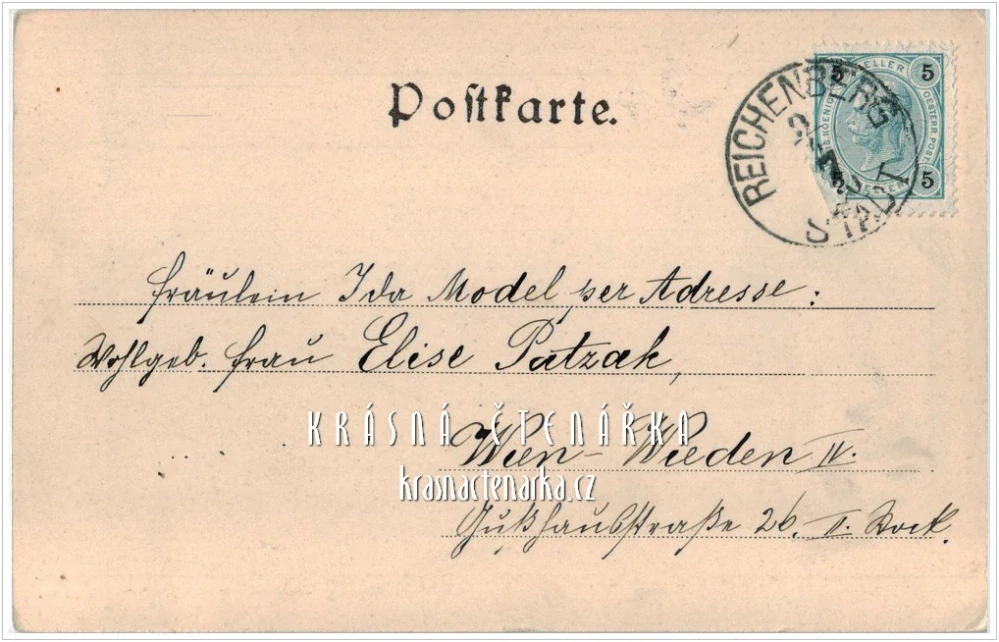 Postkarte.
REICHENBERG STADT
5 HELLER 5
OESTERR. POST
5 5
Fräulein Ida Model per Adresse:
Wohlgeb. Frau Elise Patzak,
KRÁSNÁ ČTENÁŘKA
Wien-Wieden IV.
krasnactenarka.cz
Gußhausstraße 26. II. Stock.